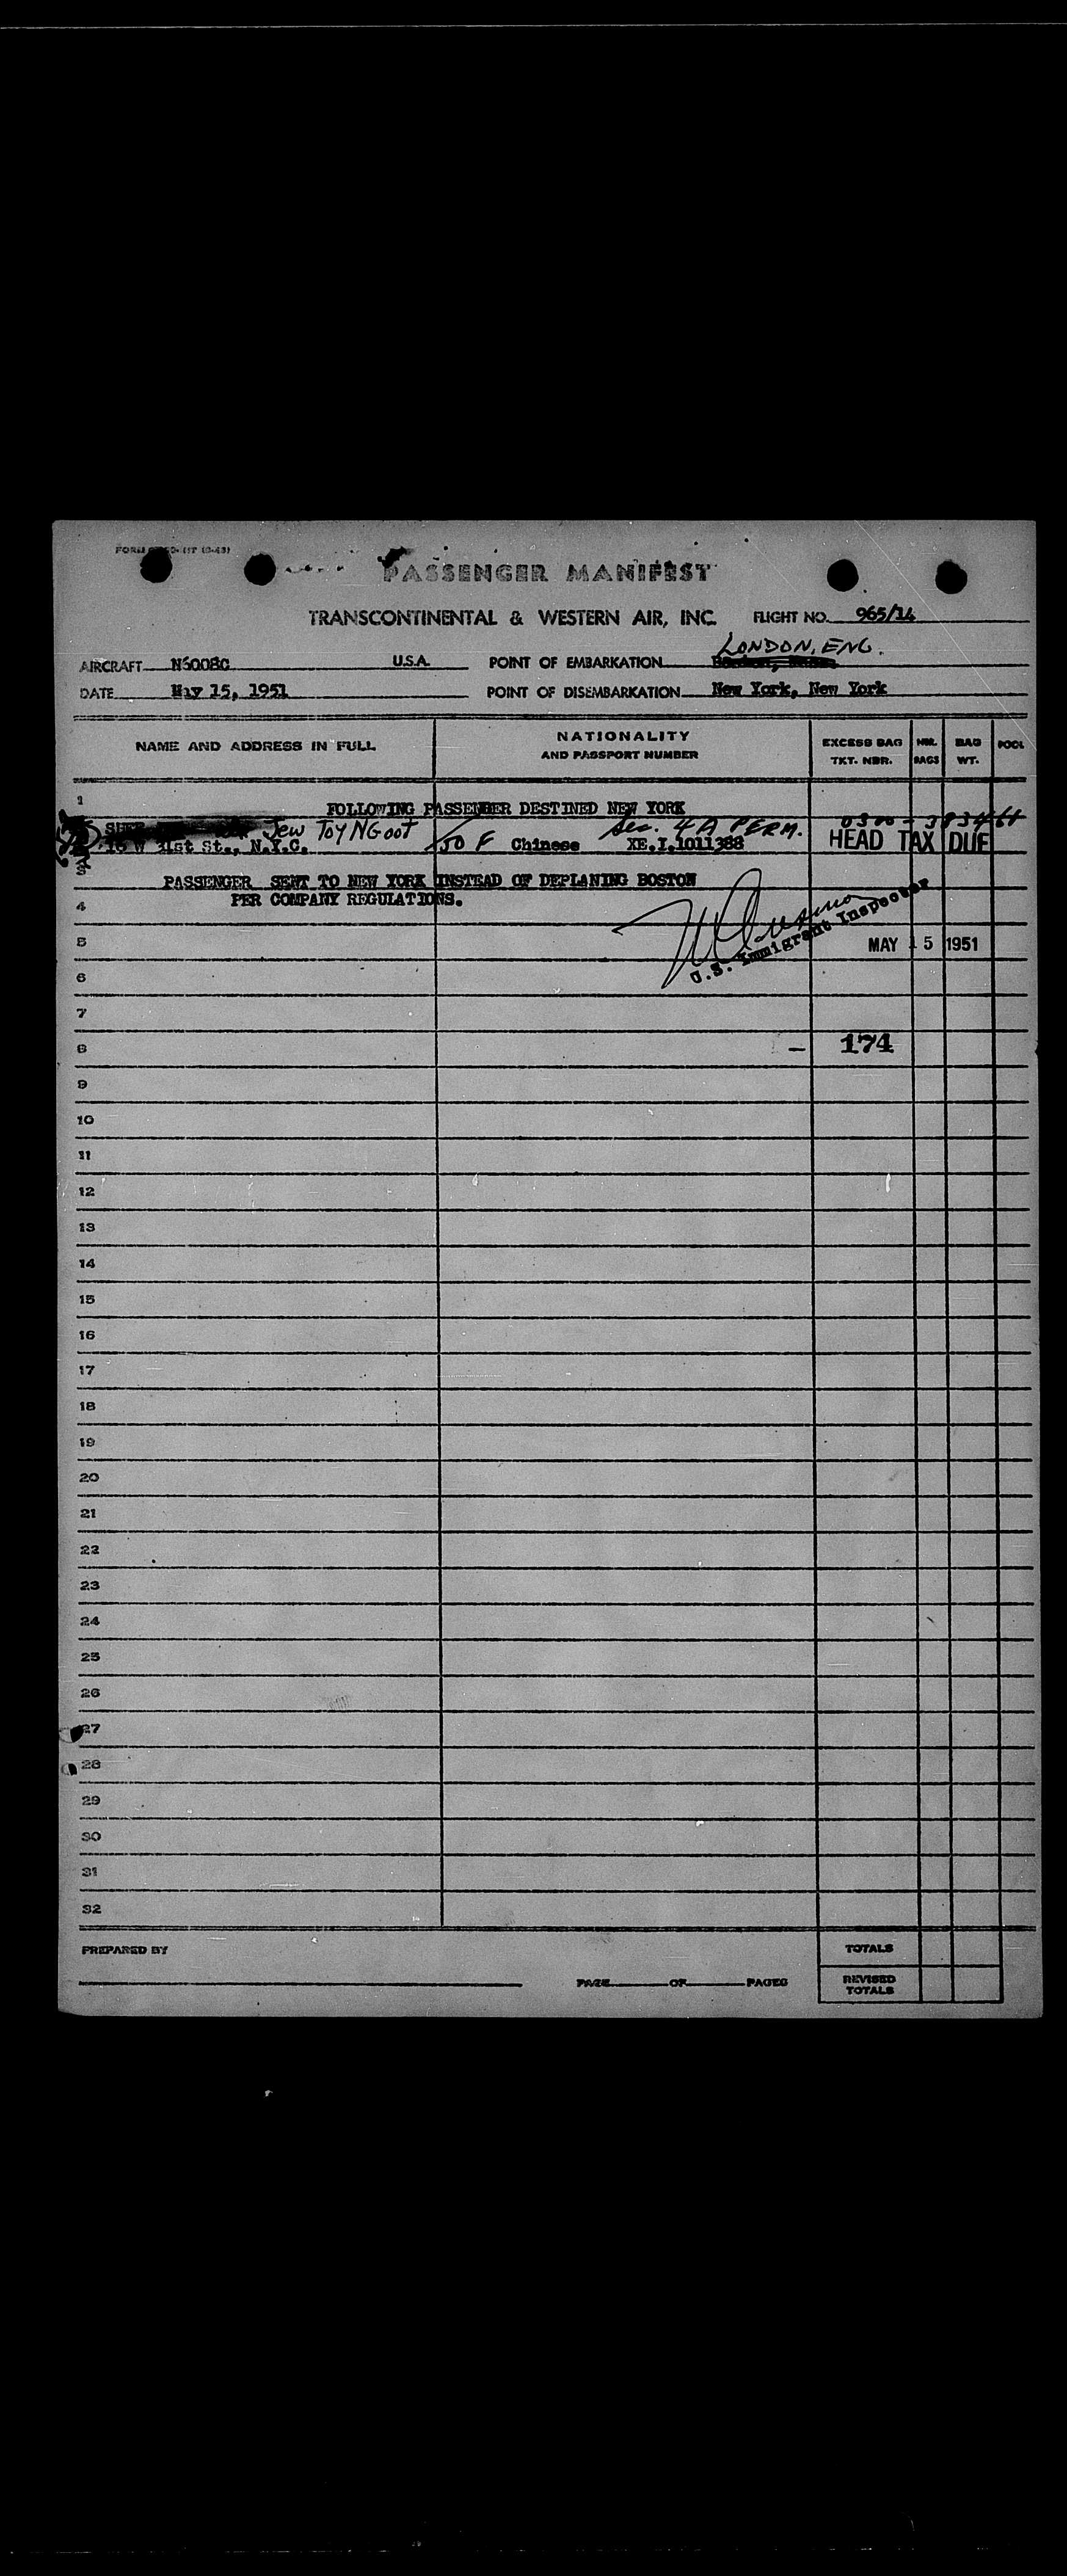 PASSENGER MANIFEST
TRANSCONTINENTAL & WESTERN AIR, INC. FLIGHT NO. 965/14
LONDON, ENG.
AIRCRAFT N6008C U.S.A. POINT OF EMBARKATION
DATE May 15, 1951 POINT OF DISEMBARKATION New York, New York
NAME AND ADDRESS IN FULL NATIONALITY AND PASSPORT NUMBER EXCESS BAG TKT. NBR. BAGS BAG WT. POOL
1
FOLLOWING PASSENGER DESTINED NEW YORK
Jew Toy NGoot Sec. 4 A PERM. 0300 -
W 31st St., N.Y.C. 50 F Chinese XE.I.1011388 HEAD TAX DUE
3
PASSENGER SENT TO NEW YORK INSTEAD OF DEPLANING BOSTON
4 PER COMPANY REGULATIONS.
U.S. Immigrant Inspector
5 MAY 15 1951
6
7
8 — 174
9
10
11
12
13
14
15
16
17
18
19
20
21
22
23
24
25
26
27
28
29
30
31
32
PREPARED BY TOTALS
PAGE OF PAGES REVISED TOTALS